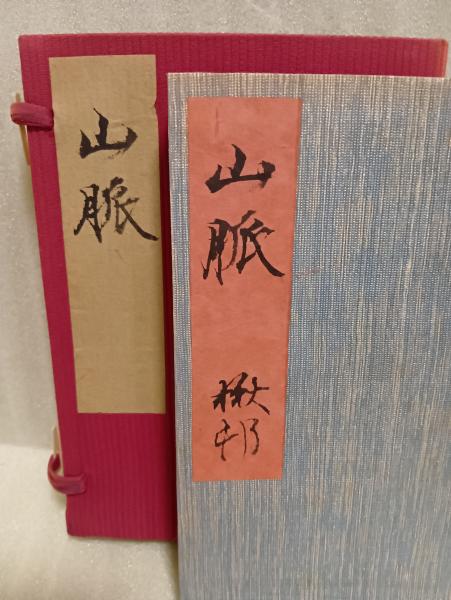 山脈
山脈
楸邨